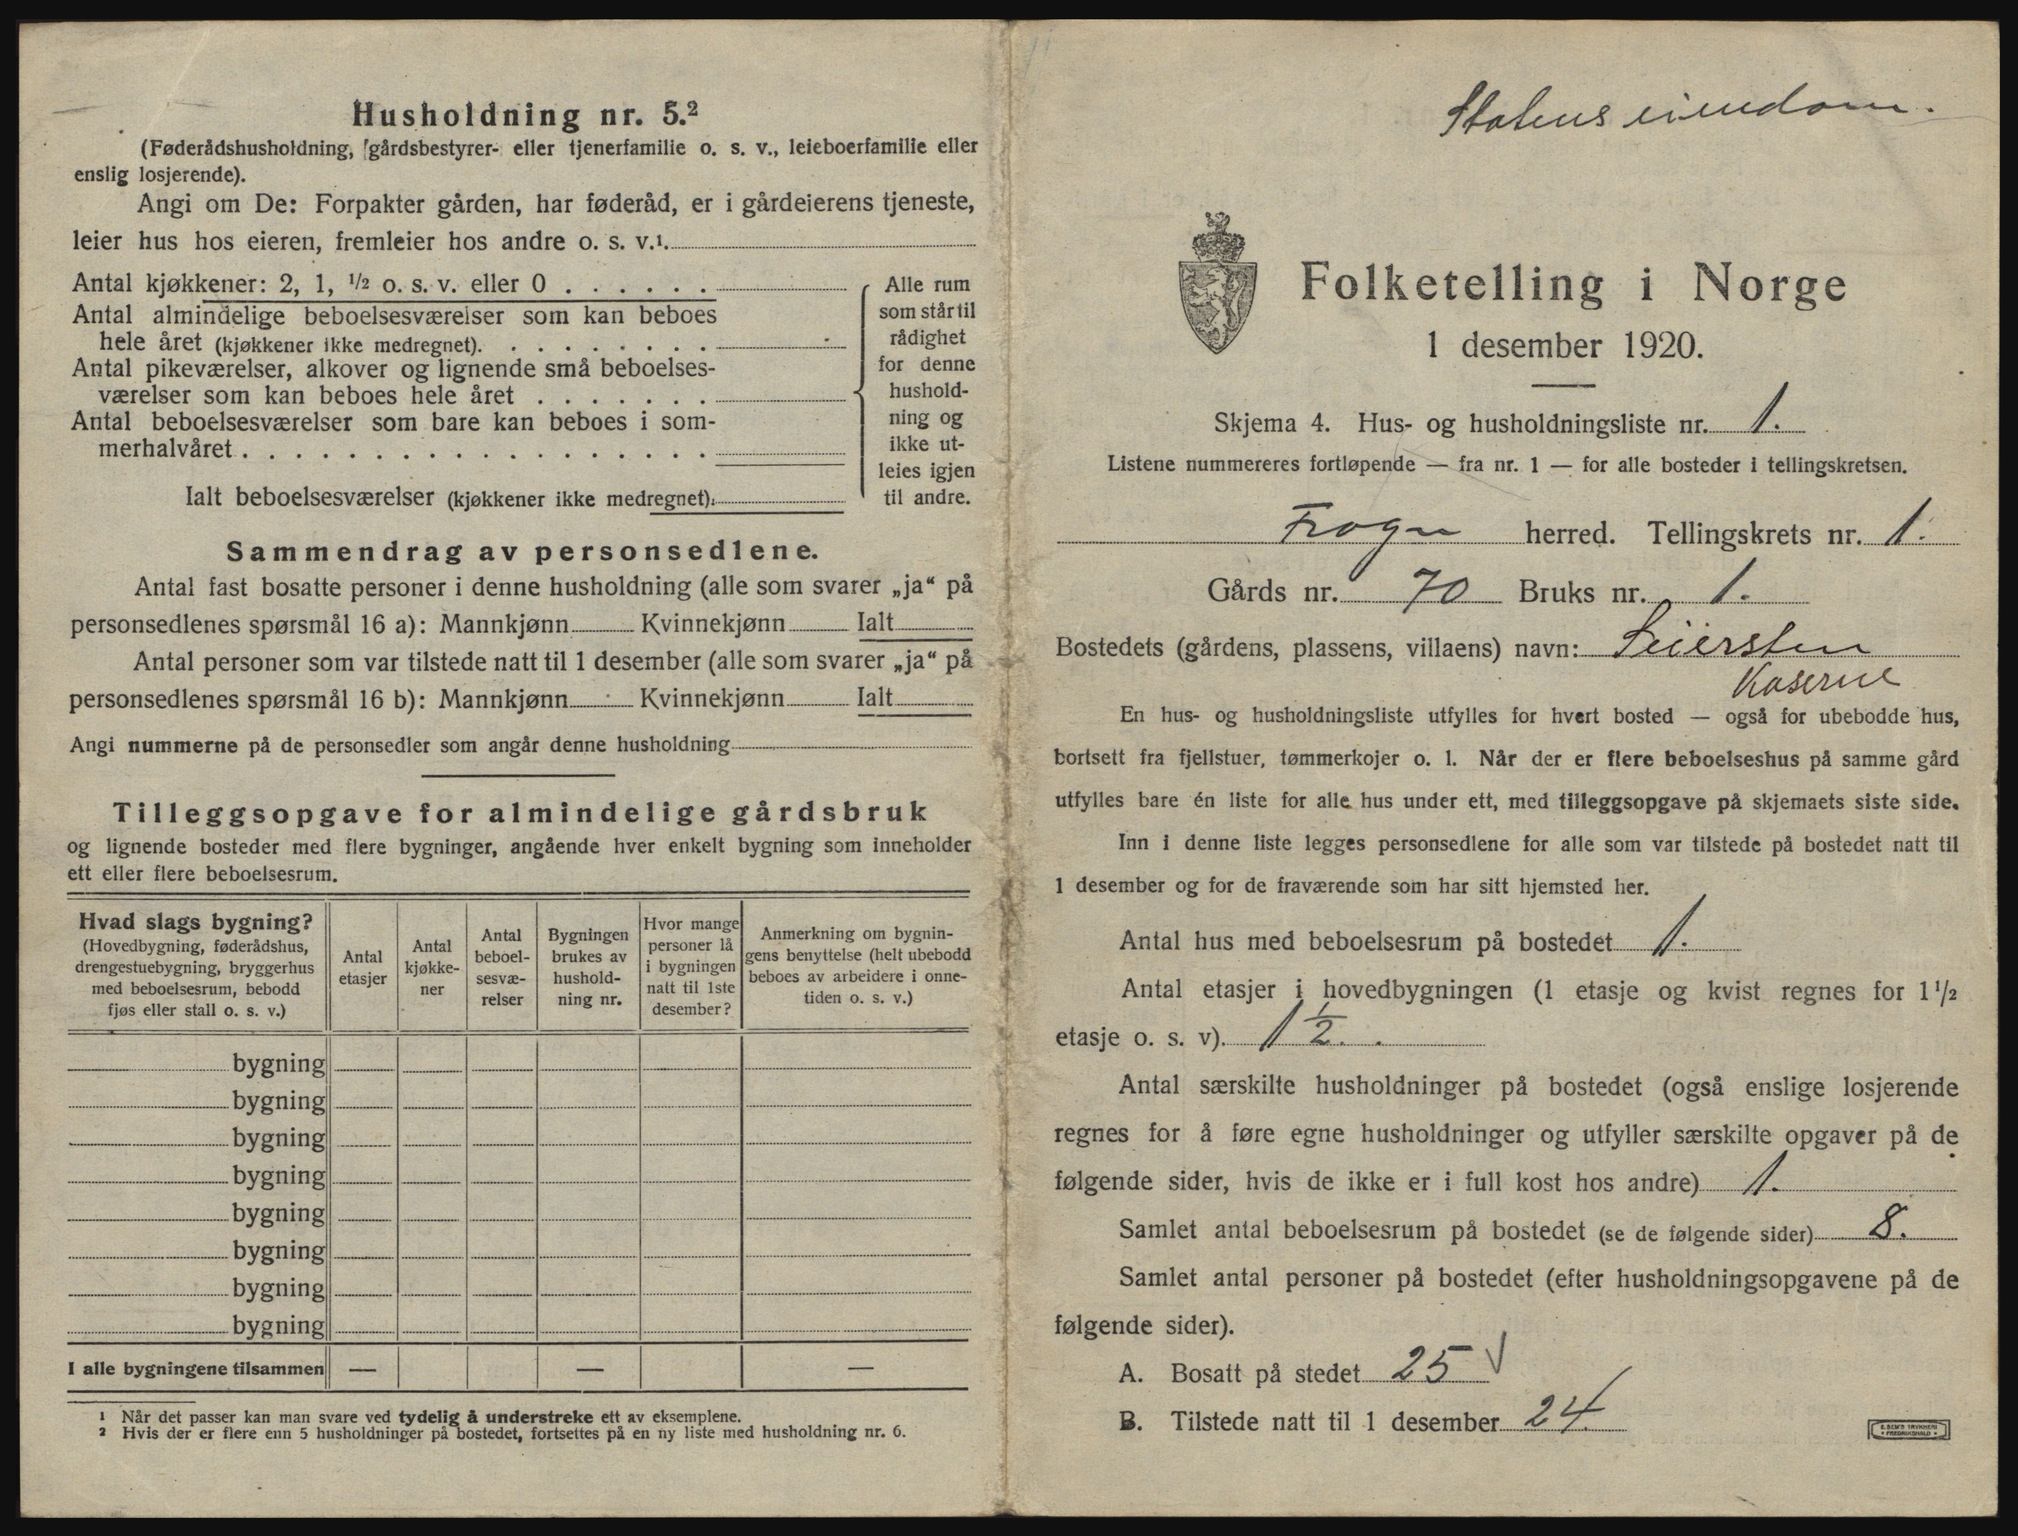 Husholdning nr. 5.²
(Føderådshusholdning, gårdsbestyrer- eller tjenerfamilie o. s. v., leieboerfamilie eller
enslig losjerende).
Angi om De: Forpakter gården, har føderåd, er i gårdeierens tjeneste,
leier hus hos eieren, fremleier hos andre o. s. v.¹.
Antal kjøkkener: 2, 1, ½ o. s. v. eller 0 . . . . . .
Antal almindelige beboelsesværelser som kan beboes
hele året (kjøkkener ikke medregnet). . . . . . . . .
Antal pikeværelser, alkover og lignende små beboelses-
værelser som kan beboes hele året . . . . . . .
Antal beboelsesværelser som bare kan beboes i som-
merhalvåret . . . . . . . . . . . . . . . . . .
Ialt beboelsesværelser (kjøkkener ikke medregnet).
Alle rum
som står til
rådighet
for denne
hushold-
ning og
ikke ut-
leies igjen
til andre.
Sammendrag av personsedlene.
Antal fast bosatte personer i denne husholdning (alle som svarer „ja“ på
personsedlenes spørsmål 16 a): Mannkjønn Kvinnekjønn Ialt
Antal personer som var tilstede natt til 1 desember (alle som svarer „ja“ på
personsedlenes spørsmål 16 b): Mannkjønn Kvinnekjønn Ialt
Angi nummerne på de personsedler som angår denne husholdning
Tilleggsopgave for almindelige gårdsbruk
og lignende bosteder med flere bygninger, angående hver enkelt bygning som inneholder
ett eller flere beboelsesrum.
Hvad slags bygning?
(Hovedbygning, føderådshus,
drengestuebygning, bryggerhus
med beboelsesrum, bebodd
fjøs eller stall o. s. v.)
Antal
etasjer
Antal
kjøkke-
ner
Antal
beboel-
sesvæ-
relser
Bygningen
brukes av
hushold-
ning nr.
Hvor mange
personer lå
i bygningen
natt til 1ste
desember?
Anmerkning om bygnin-
gens benyttelse (helt ubebodd
beboes av arbeidere i onne-
tiden o. s. v.)
bygning
bygning
bygning
bygning
bygning
bygning
bygning
bygning
I alle bygningene tilsammen — — —
¹ Når det passer kan man svare ved tydelig å understreke ett av eksemplene.
² Hvis der er flere enn 5 husholdninger på bostedet, fortsettes på en ny liste med husholdning nr. 6.
Statens eiendom.
Folketelling i Norge
1 desember 1920.
Skjema 4. Hus- og husholdningsliste nr. 1.
Listene nummereres fortløpende — fra nr. 1 — for alle bosteder i tellingskretsen.
Frogn herred. Tellingskrets nr. 1.
Gårds nr. 70 Bruks nr. 1.
Bostedets (gårdens, plassens, villaens) navn: Seiersten
Kaserne
En hus- og husholdningsliste utfylles for hvert bosted — også for ubebodde hus,
bortsett fra fjellstuer, tømmerkojer o. l. Når der er flere beboelseshus på samme gård
utfylles bare én liste for alle hus under ett, med tilleggsopgave på skjemaets siste side.
Inn i denne liste legges personsedlene for alle som var tilstede på bostedet natt til
1 desember og for de fraværende som har sitt hjemsted her.
Antal hus med beboelsesrum på bostedet 1.
Antal etasjer i hovedbygningen (1 etasje og kvist regnes for 1½
etasje o. s. v). 1½.
Antal særskilte husholdninger på bostedet (også enslige losjerende
regnes for å føre egne husholdninger og utfyller særskilte opgaver på de
følgende sider, hvis de ikke er i full kost hos andre) 1.
Samlet antal beboelsesrum på bostedet (se de følgende sider) 8.
Samlet antal personer på bostedet (efter husholdningsopgavene på de
følgende sider).
A. Bosatt på stedet 25 √
B. Tilstede natt til 1 desember 24.